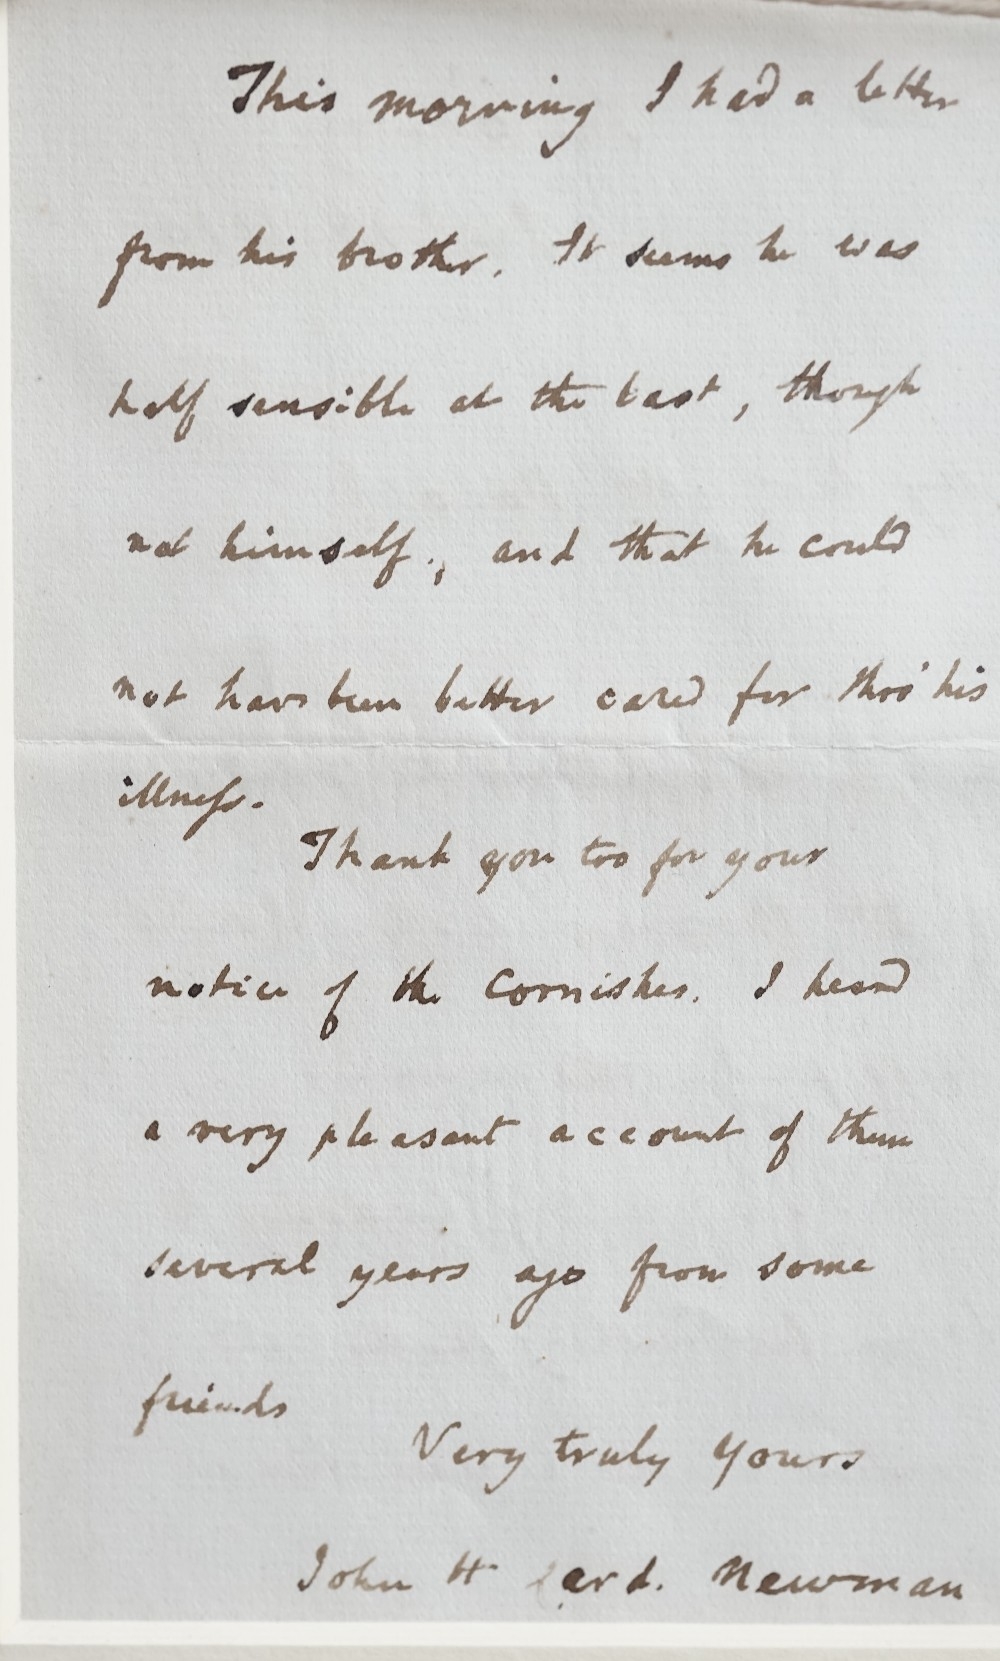 This morning I had a letter
from his brother. It seems he was
half sensible at the last, though
not himself, and that he could
not have been better cared for thro' his
illness.
Thank you too for your
notice of the Cornishes. I heard
a very pleasant account of them
several years ago from some
friends
Very truly Yours
John H Card. Newman